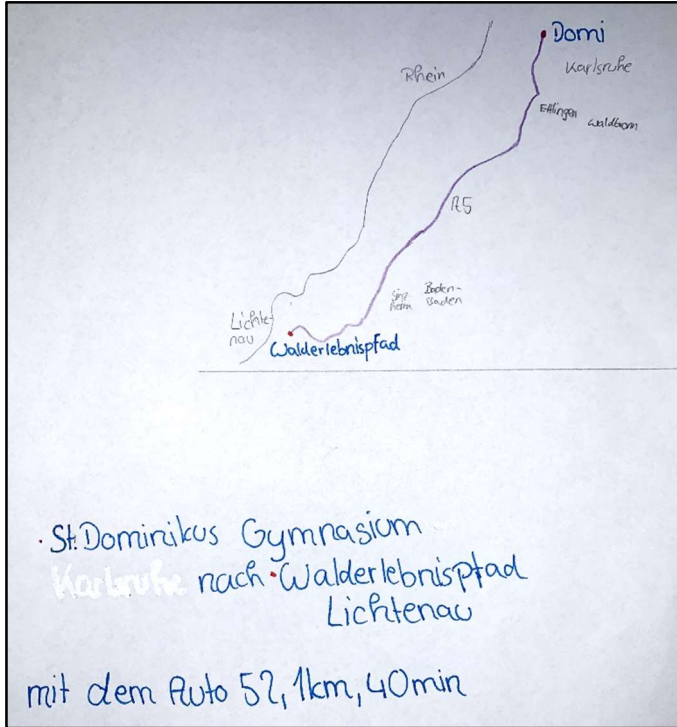 Domi
Rhein
Karlsruhe
Ettlingen
Waldbronn
A5
Sinz
heim
Baden-
Baden
Lichte-
nau
Walderlebnispfad
St. Dominikus Gymnasium
Karlsruhe nach Walderlebnispfad
Lichtenau
mit dem Auto 52,1km, 40min